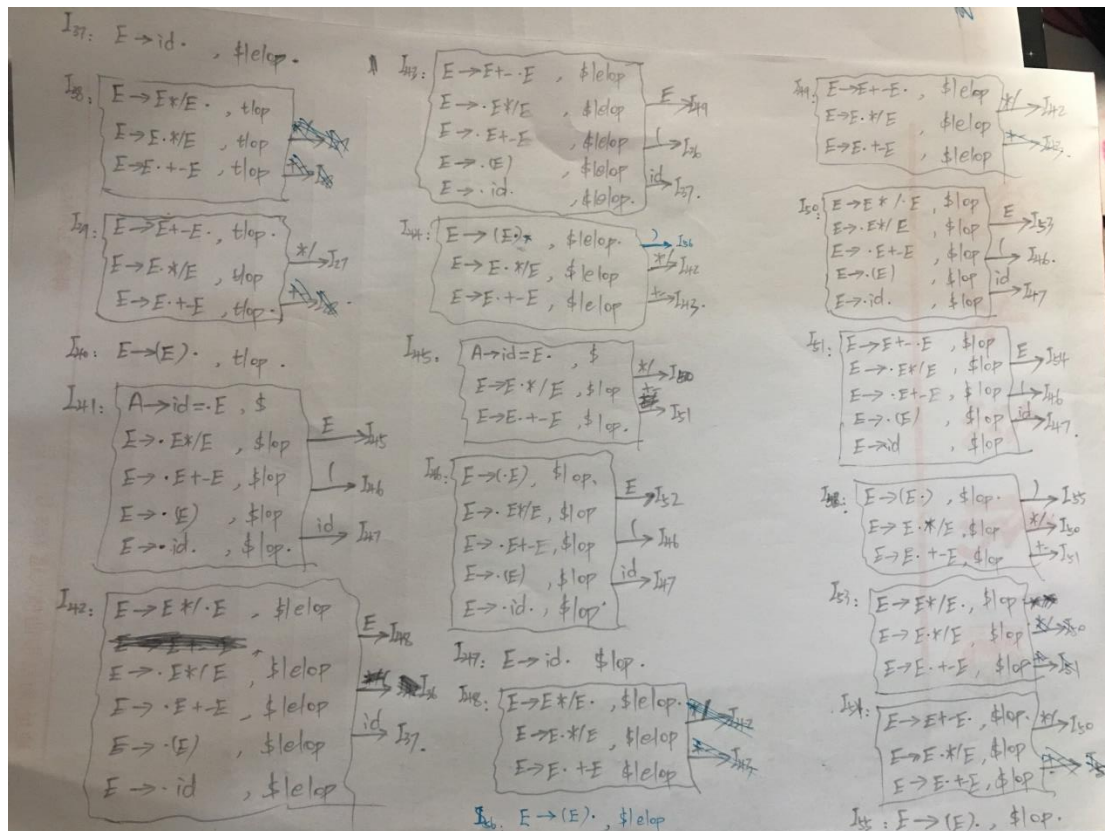 I37: E→id· , $|e|op.
I38: E→E*/E· , t|op
E→E·*/E , t|op
E→E·+-E , t|op
I39: E→E+-E· , t|op.
E→E·*/E , t|op */→I27
E→E·+-E , t|op.
I40: E→(E)· , t|op.
I41: A→id=·E , $
E→·E*/E , $|op E→I45
E→·E+-E , $|op (→I46
E→·(E) , $|op
E→·id. , $|op. id→I47
I42: E→E*/·E , $|e|op
E→I48
E→·E*/E , $|e|op
→I36
E→·E+-E , $|e|op
E→·(E) , $|e|op id→I37.
E→·id , $|e|op
I43: E→E+-·E , $|e|op
E→·E*/E , $|e|op E→I49
E→·E+-E , $|e|op (→I36
E→·(E) , $|e|op id→I37.
E→·id. , $|e|op.
I44: E→(E·) , $|e|op. )→I56
E→E·*/E , $|e|op */→I42
E→E·+-E , $|e|op +-→I43.
I45. A→id=E· , $
E→E·*/E , $|op */→I50
E→E·+-E , $|op. →I51
I46: E→(·E), $|op.
E→·E*/E, $|op E→I52
E→·E+-E, $|op (→I46
E→·(E) , $|op id→I47
E→·id. , $|op.
I47: E→id· $|op.
I48: E→E*/E· , $|e|op.
E→E·*/E , $|e|op
E→E·+E $|e|op
I56. E→(E)· , $|e|op
I49: E→E+-E·, $|e|op */→I42
E→E·*/E , $|e|op
E→E·+-E , $|e|op
I50: E→E*/·E , $|op E→I53
E→·E*/E , $|op
E→·E+-E , $|op (→I46.
E→·(E) , $|op id→I47
E→·id. , $|op
I51: E→E+-·E , $|op E→I54
E→·E*/E , $|op
E→·E+-E , $|op (→I46
E→·(E) , $|op id→I47.
E→id , $|op
E→(E·) , $|op. )→I55
E→E·*/E, $|op */→I50
E→E·+-E, $|op +-→I51
I53: E→E*/E·, $|op
E→E·*/E , $|op
E→E·+-E, $|op
I54: E→E+-E·, $|op. */→I50
E→E·*/E, $|op
E→E·+-E, $|op
I55: E→(E)· , $|op.